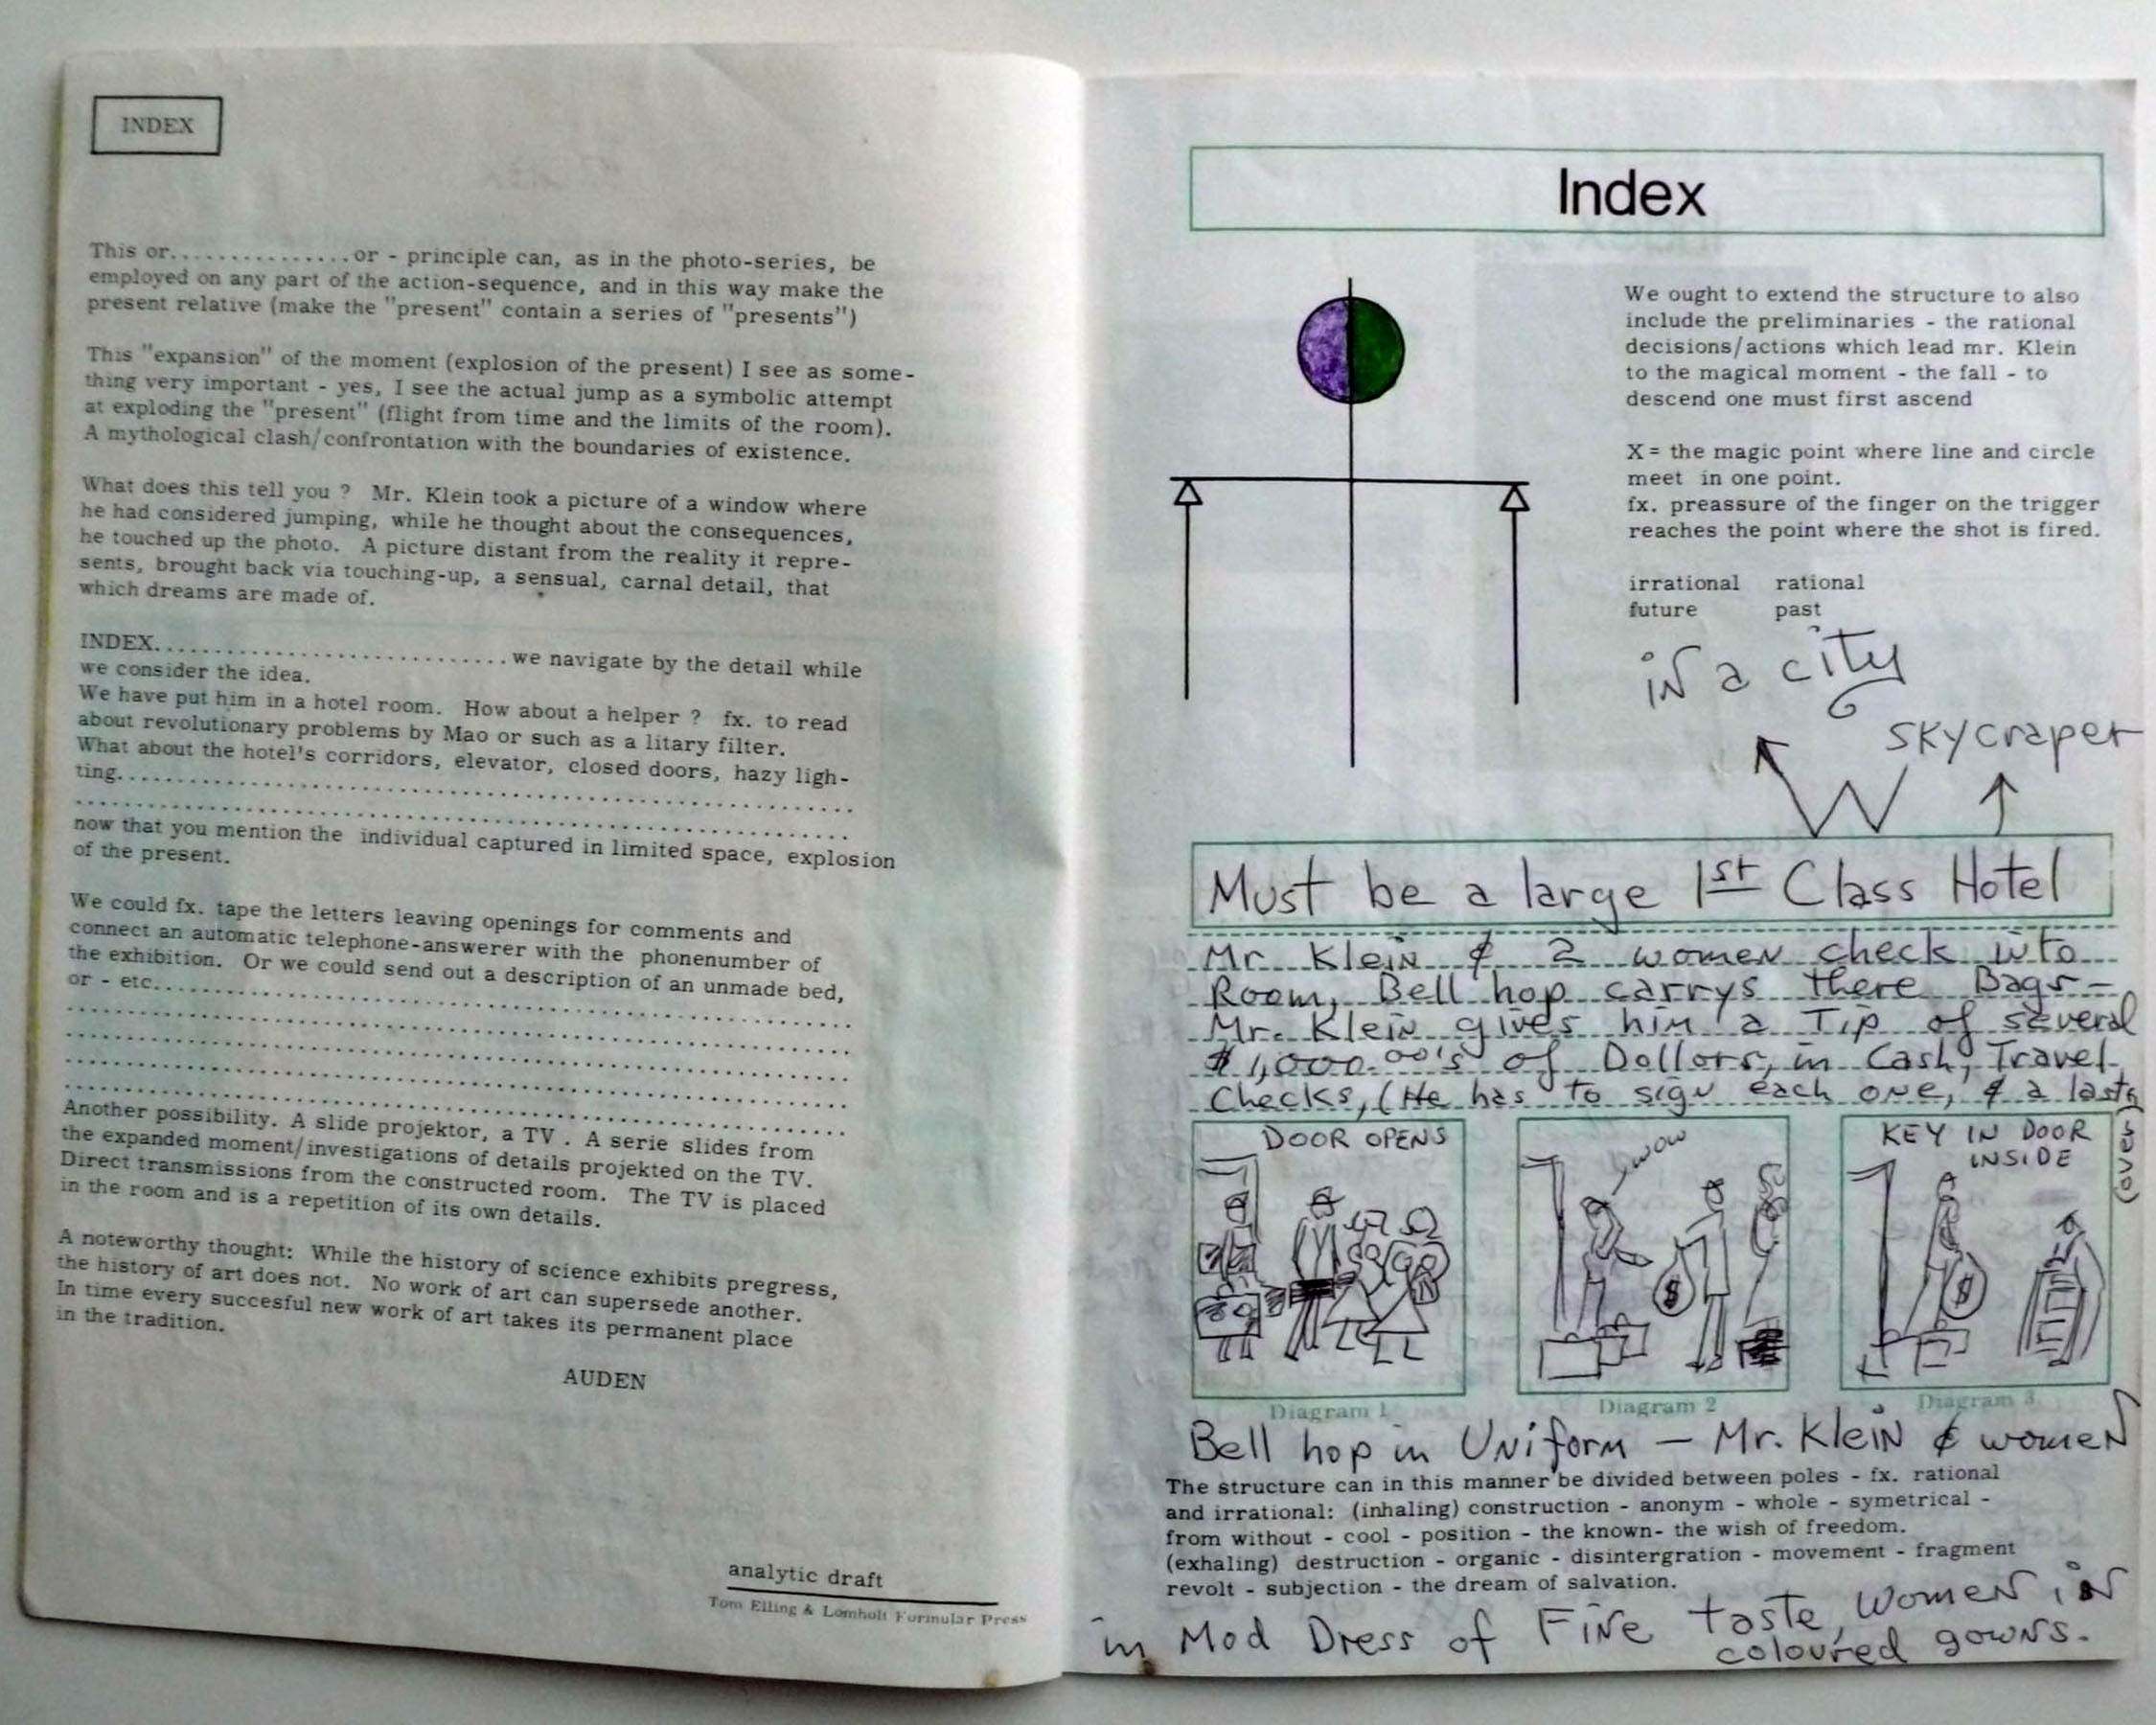 INDEX
This or...............or - principle can, as in the photo-series, be
employed on any part of the action-sequence, and in this way make the
present relative (make the "present" contain a series of "presents")
This "expansion" of the moment (explosion of the present) I see as some-
thing very important - yes, I see the actual jump as a symbolic attempt
at exploding the "present" (flight from time and the limits of the room).
A mythological clash/confrontation with the boundaries of existence.
What does this tell you ? Mr. Klein took a picture of a window where
he had considered jumping, while he thought about the consequences,
he touched up the photo. A picture distant from the reality it repre-
sents, brought back via touching-up, a sensual, carnal detail, that
which dreams are made of.
INDEX..............................we navigate by the detail while
we consider the idea.
We have put him in a hotel room. How about a helper ? fx. to read
about revolutionary problems by Mao or such as a litary filter.
What about the hotel's corridors, elevator, closed doors, hazy ligh-
ting..............................................................
..................................................................
now that you mention the individual captured in limited space, explosion
of the present.
We could fx. tape the letters leaving openings for comments and
connect an automatic telephone-answerer with the phonenumber of
the exhibition. Or we could send out a description of an unmade bed,
or - etc..........................................................
..................................................................
..................................................................
..................................................................
..................................................................
Another possibility. A slide projektor, a TV . A serie slides from
the expanded moment/investigations of details projekted on the TV.
Direct transmissions from the constructed room. The TV is placed
in the room and is a repetition of its own details.
A noteworthy thought: While the history of science exhibits pregress,
the history of art does not. No work of art can supersede another.
In time every succesful new work of art takes its permanent place
in the tradition.
AUDEN
analytic draft
Tom Elling & Lomholt Formular Press
Index
We ought to extend the structure to also
include the preliminaries - the rational
decisions/actions which lead mr. Klein
to the magical moment - the fall - to
descend one must first ascend
X = the magic point where line and circle
meet in one point.
fx. preassure of the finger on the trigger
reaches the point where the shot is fired.
irrational rational
future past
in a city
SKYCraper
Must be a large 1st Class Hotel
Mr Klein & 2 women check into
Room, Bell hop carrys there Bags -
Mr. Klein gives him a Tip of several
$1,000.00's of Dollors, in Cash, Travel
Checks, (He has to sign each one, & a lasts
(over)
DOOR OPENS
WOW
$
KEY IN DOOR
INSIDE
$
Diagram 1
Diagram 2
Diagram 3
Bell hop in Uniform — Mr. Klein & women
The structure can in this manner be divided between poles - fx. rational
and irrational: (inhaling) construction - anonym - whole - symetrical -
from without - cool - position - the known- the wish of freedom.
(exhaling) destruction - organic - disintergration - movement - fragment
revolt - subjection - the dream of salvation.
in Mod Dress of Fine taste, Women in
coloured gowns.